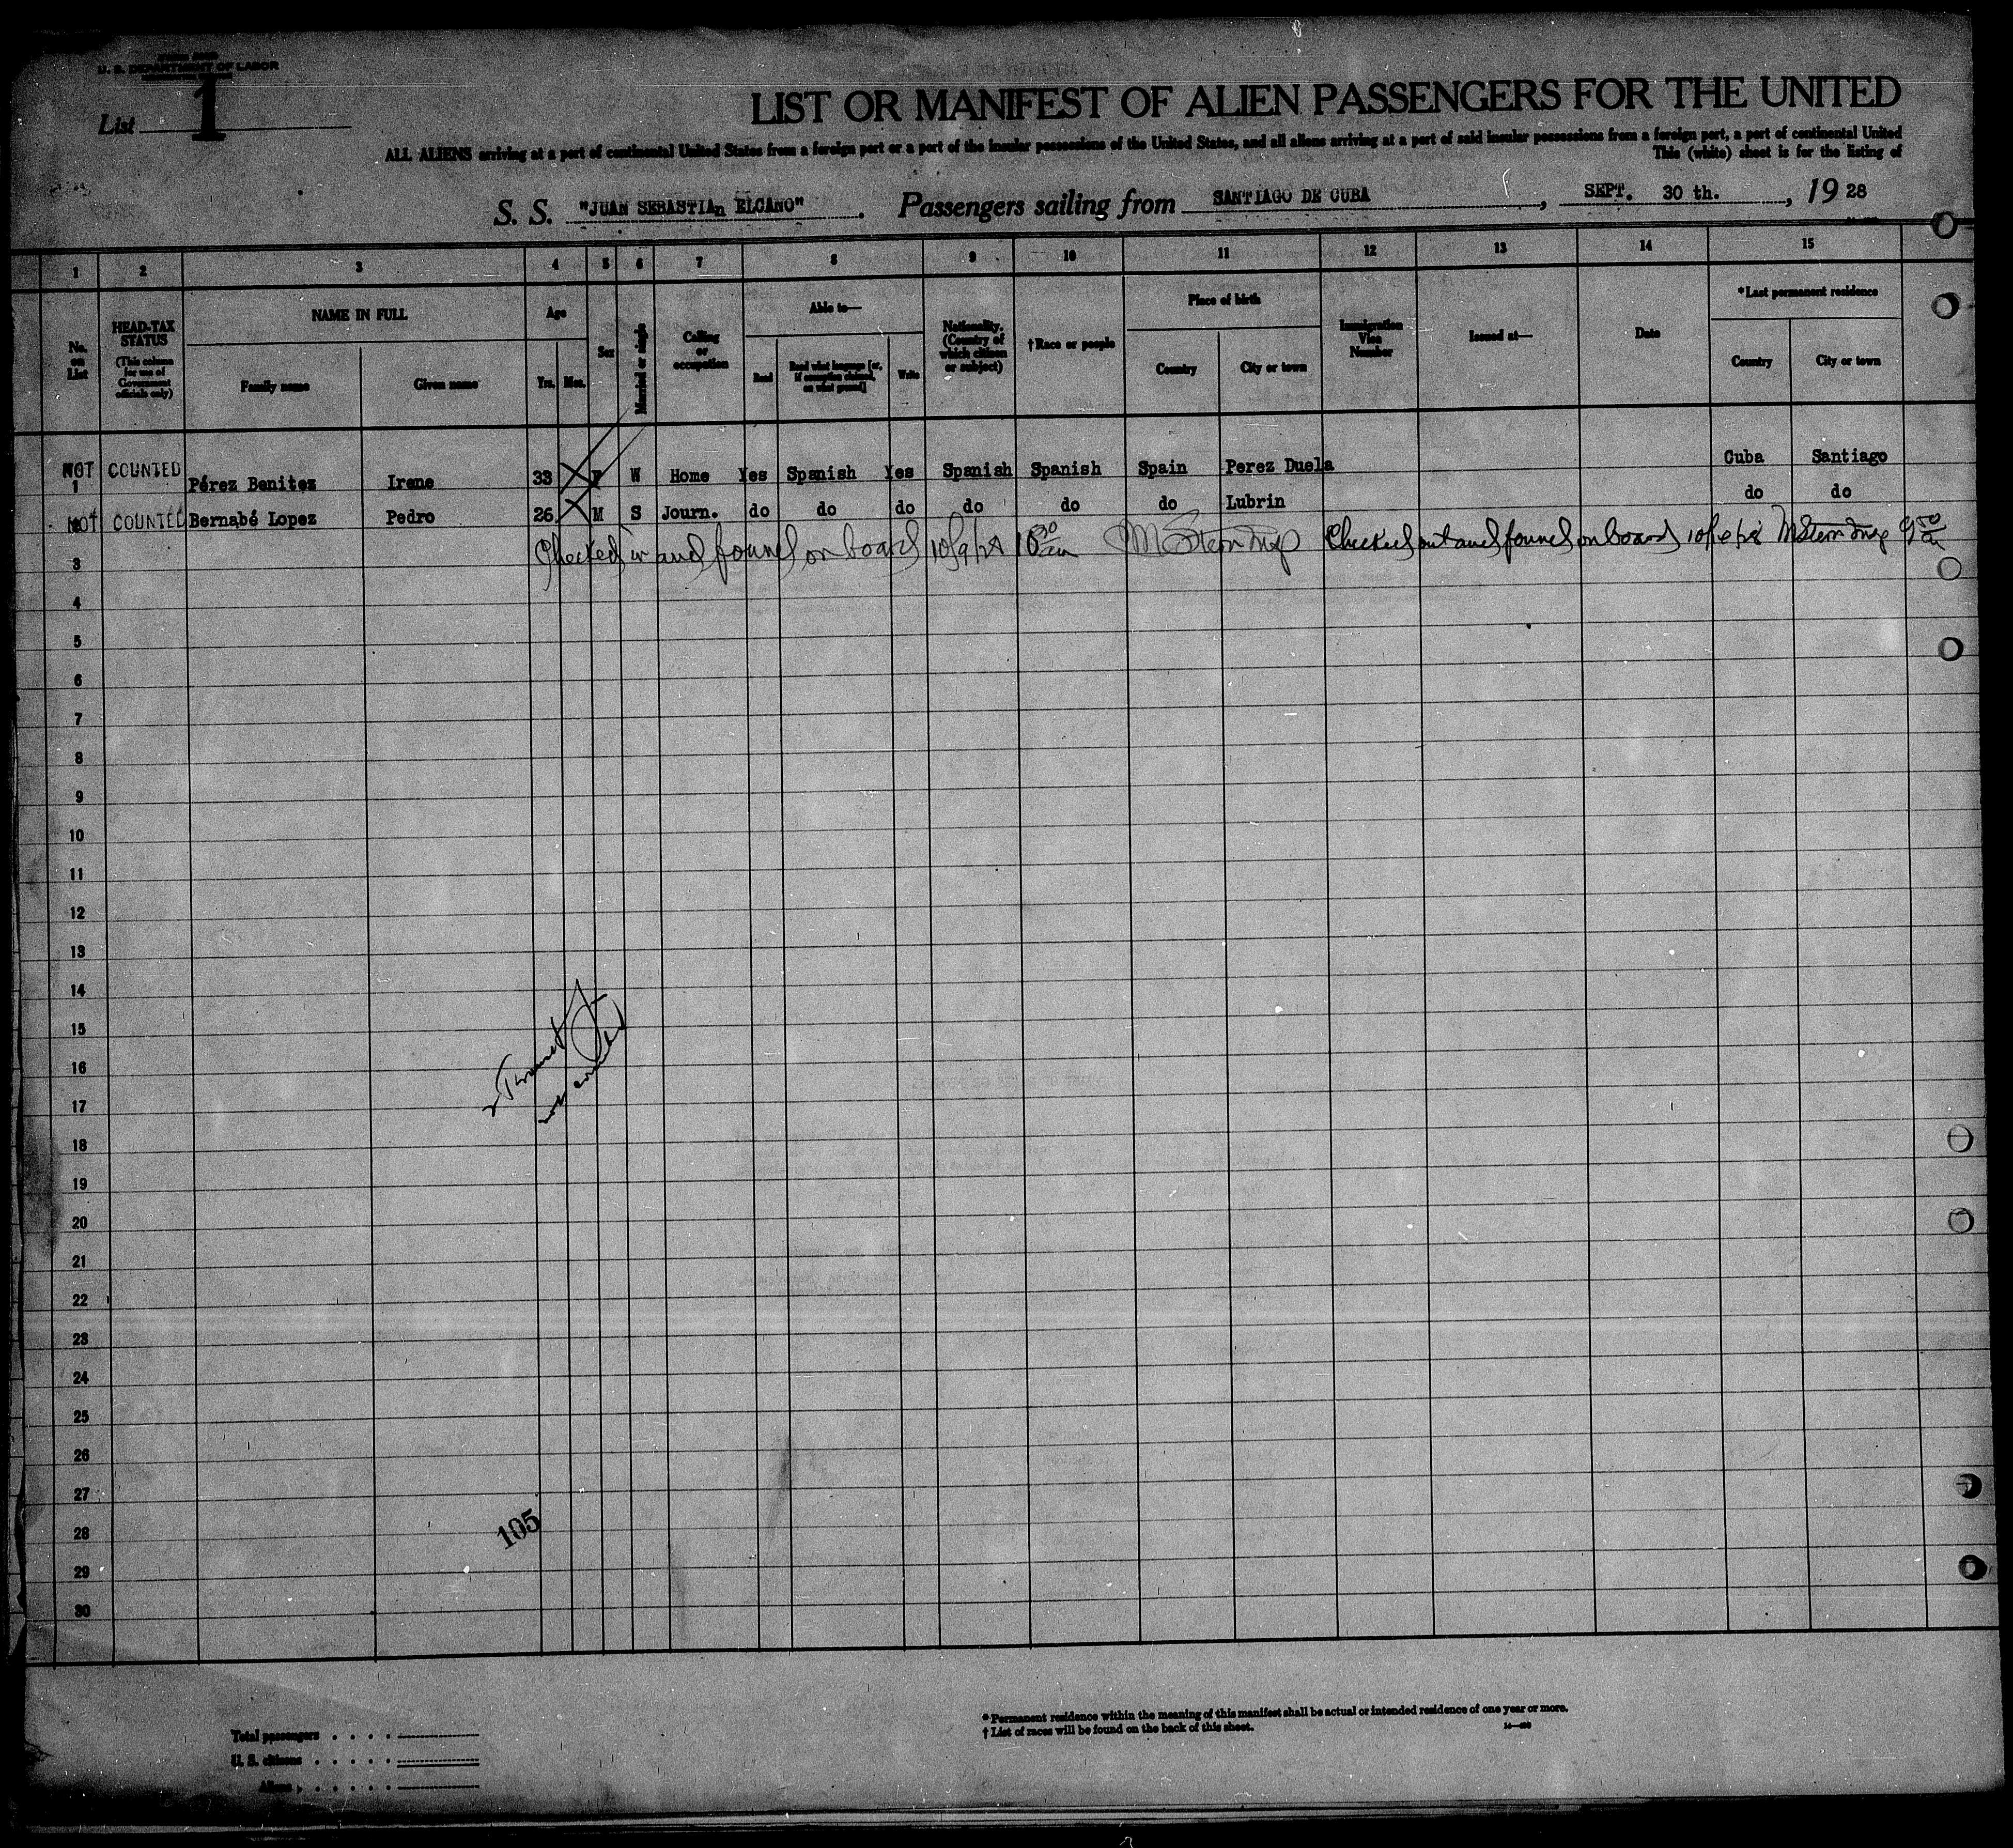 U. S. DEPARTMENT OF LABOR
List 1
LIST OR MANIFEST OF ALIEN PASSENGERS FOR THE UNITED
ALL ALIENS arriving at a port of continental United States from a foreign port or a port of the insular possessions of the United States, and all aliens arriving at a port of said insular possessions from a foreign port, a port of continental United
This (white) sheet is for the listing of
S. S. "JUAN SEBASTIAn ELCANO". Passengers sailing from SANTIAGO DE CUBA, SEPT. 30 th., 19 28
1 2 3 4 5 6 7 8 9 10 11 12 13 14 15
No. on List
HEAD-TAX STATUS (This column for use of Government officials only)
NAME IN FULL
Family name Given name
Age
Yrs. Mos.
Sex
Married or single
Calling or occupation
Able to—
Read Read what language [or, if exemption claimed, on what ground] Write
Nationality. (Country of which citizen or subject)
†Race or people
Place of birth
Country City or town
Immigration Visa Number
Issued at—
Date
*Last permanent residence
Country City or town
NOT COUNTED
1 Pérez Benitez Irene 33 F W Home Yes Spanish Yes Spanish Spanish Spain Perez Duela Cuba Santiago
NOT COUNTED Bernabé Lopez Pedro 26 M S Journ. do do do do do do Lubrin do do
Checked in and found on board 10/9/28 10 30 am M Stern Insp Checked out and found on board M Stern Insp 9 50 am
3
4
5
6
7
8
9
10
11
12
13
14
15
16
17
18
19
20
21
22
23
24
25
26
27
28
29
30
not counted
105
Total passengers
U. S. citizens
Aliens
* Permanent residence within the meaning of this manifest shall be actual or intended residence of one year or more.
† List of races will be found on the back of this sheet.